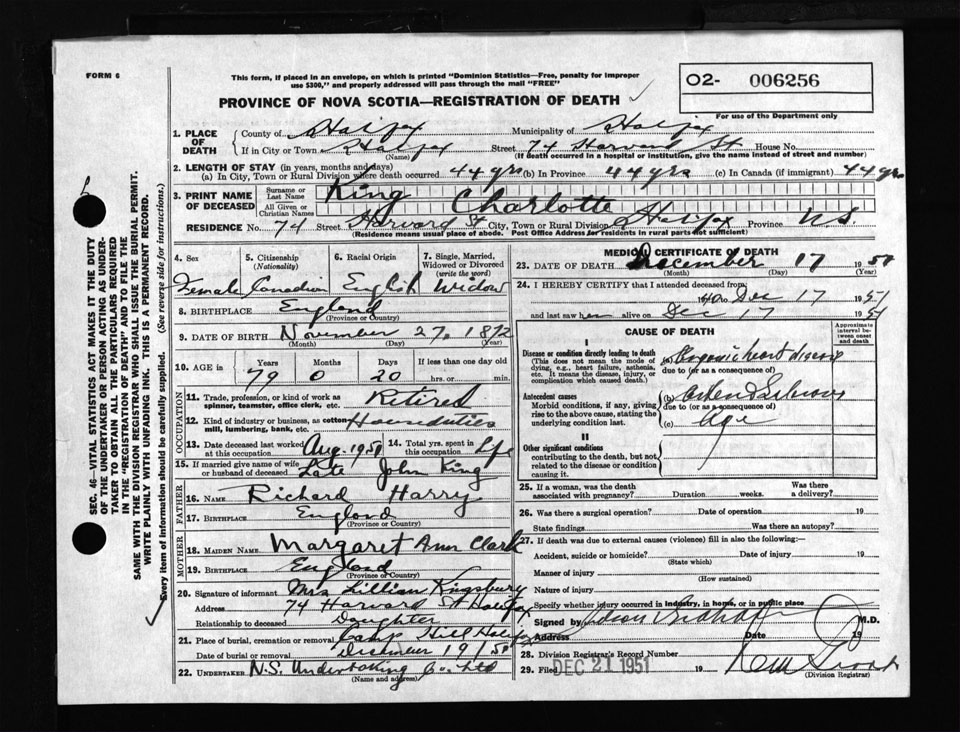 FORM 6
This form, if placed in an envelope, on which is printed "Dominion Statistics—Free, penalty for improper
use $300," and properly addressed will pass through the mail "FREE"
O2- 006256
PROVINCE OF NOVA SCOTIA—REGISTRATION OF DEATH ✓
For use of the Department only
1. PLACE OF DEATH
County of Halifax Municipality of Halifax
If in City or Town Halifax Street 74 Harvard St House No.
(Name) (If death occurred in a hospital or institution, give the name instead of street and number)
2. LENGTH OF STAY (in years, months and days)
(a) In City, Town or Rural Division where death occurred 44 yrs (b) In Province 44 yrs (c) In Canada (if immigrant) 44 yrs
3. PRINT NAME OF DECEASED
Surname or Last Name King
All Given or Christian Names Charlotte
RESIDENCE No. 74 Street Harvard St City, Town or Rural Division Halifax Province N.S.
(Residence means usual place of abode. Post Office Address for residents in rural parts not sufficient)
4. Sex 5. Citizenship (Nationality) 6. Racial Origin 7. Single, Married, Widowed or Divorced (write the word)
Female Canadian English Widow
8. BIRTHPLACE England
(Province or Country)
9. DATE OF BIRTH November 27, 1872
(Month) (Day) (Year)
10. AGE in Years Months Days If less than one day old
79 0 20 hrs. or min.
OCCUPATION
11. Trade, profession, or kind of work as spinner, teamster, office clerk, etc. Retired
12. Kind of industry or business, as cotton mill, lumbering, bank, etc. Houseduties
13. Date deceased last worked at this occupation Aug. 1950 14. Total yrs. spent in this occupation life
15. If married give name of wife or husband of deceased Late John King
FATHER
16. NAME Richard Harry
17. BIRTHPLACE England
(Province or Country)
MOTHER
18. MAIDEN NAME Margaret Ann Clark
19. BIRTHPLACE England
(Province or Country)
20. Signature of informant Mrs Lillian Kingsbury
Address 74 Harvard St Halifax
Relationship to deceased Daughter
21. Place of burial, cremation or removal Camp Hill Halifax
Date of burial or removal December 19/50
22. UNDERTAKER N.S. Undertaking Co. Ltd
(Name and address)
MEDICAL CERTIFICATE OF DEATH
23. DATE OF DEATH December 17 1950
(Month) (Day) (Year)
24. I HEREBY CERTIFY that I attended deceased from
to Dec 17 1951
and last saw her alive on Dec 17 1951
CAUSE OF DEATH
Approximate interval between onset and death
I
Disease or condition directly leading to death
(This does not mean the mode of dying, e.g., heart failure, asthenia, etc. It means the disease, injury, or complication which caused death.)
(a) Organic heart disease
due to (or as a consequence of)
Antecedent causes
Morbid conditions, if any, giving rise to the above cause, stating the underlying condition last.
(b)
due to (or as a consequence of)
(c) Age
II
Other significant conditions
contributing to the death, but not related to the disease or condition causing it.
25. If a woman, was the death associated with pregnancy? Duration weeks. Was there a delivery?
26. Was there a surgical operation? Date of operation 19
State findings Was there an autopsy?
27. If death was due to external causes (violence) fill in also the following:—
Accident, suicide or homicide? Date of injury 19
(State which)
Manner of injury
(How sustained)
Nature of injury
Specify whether injury occurred in industry, in home, or in public place
Signed by M.D.
Address Date 19
28. Division Registrar's Record Number
29. Filed DEC 21 1951 19
(Division Registrar)
SEC. 46—VITAL STATISTICS ACT MAKES IT THE DUTY
OF THE UNDERTAKER OR PERSON ACTING AS UNDER-
TAKER TO OBTAIN ALL THE PARTICULARS REQUIRED
IN THE "REGISTRATION OF DEATH" AND TO FILE THE
SAME WITH THE DIVISION REGISTRAR WHO SHALL ISSUE THE BURIAL PERMIT.
WRITE PLAINLY WITH UNFADING INK. THIS IS A PERMANENT RECORD.
Every item of information should be carefully supplied. (See reverse side for instructions.)